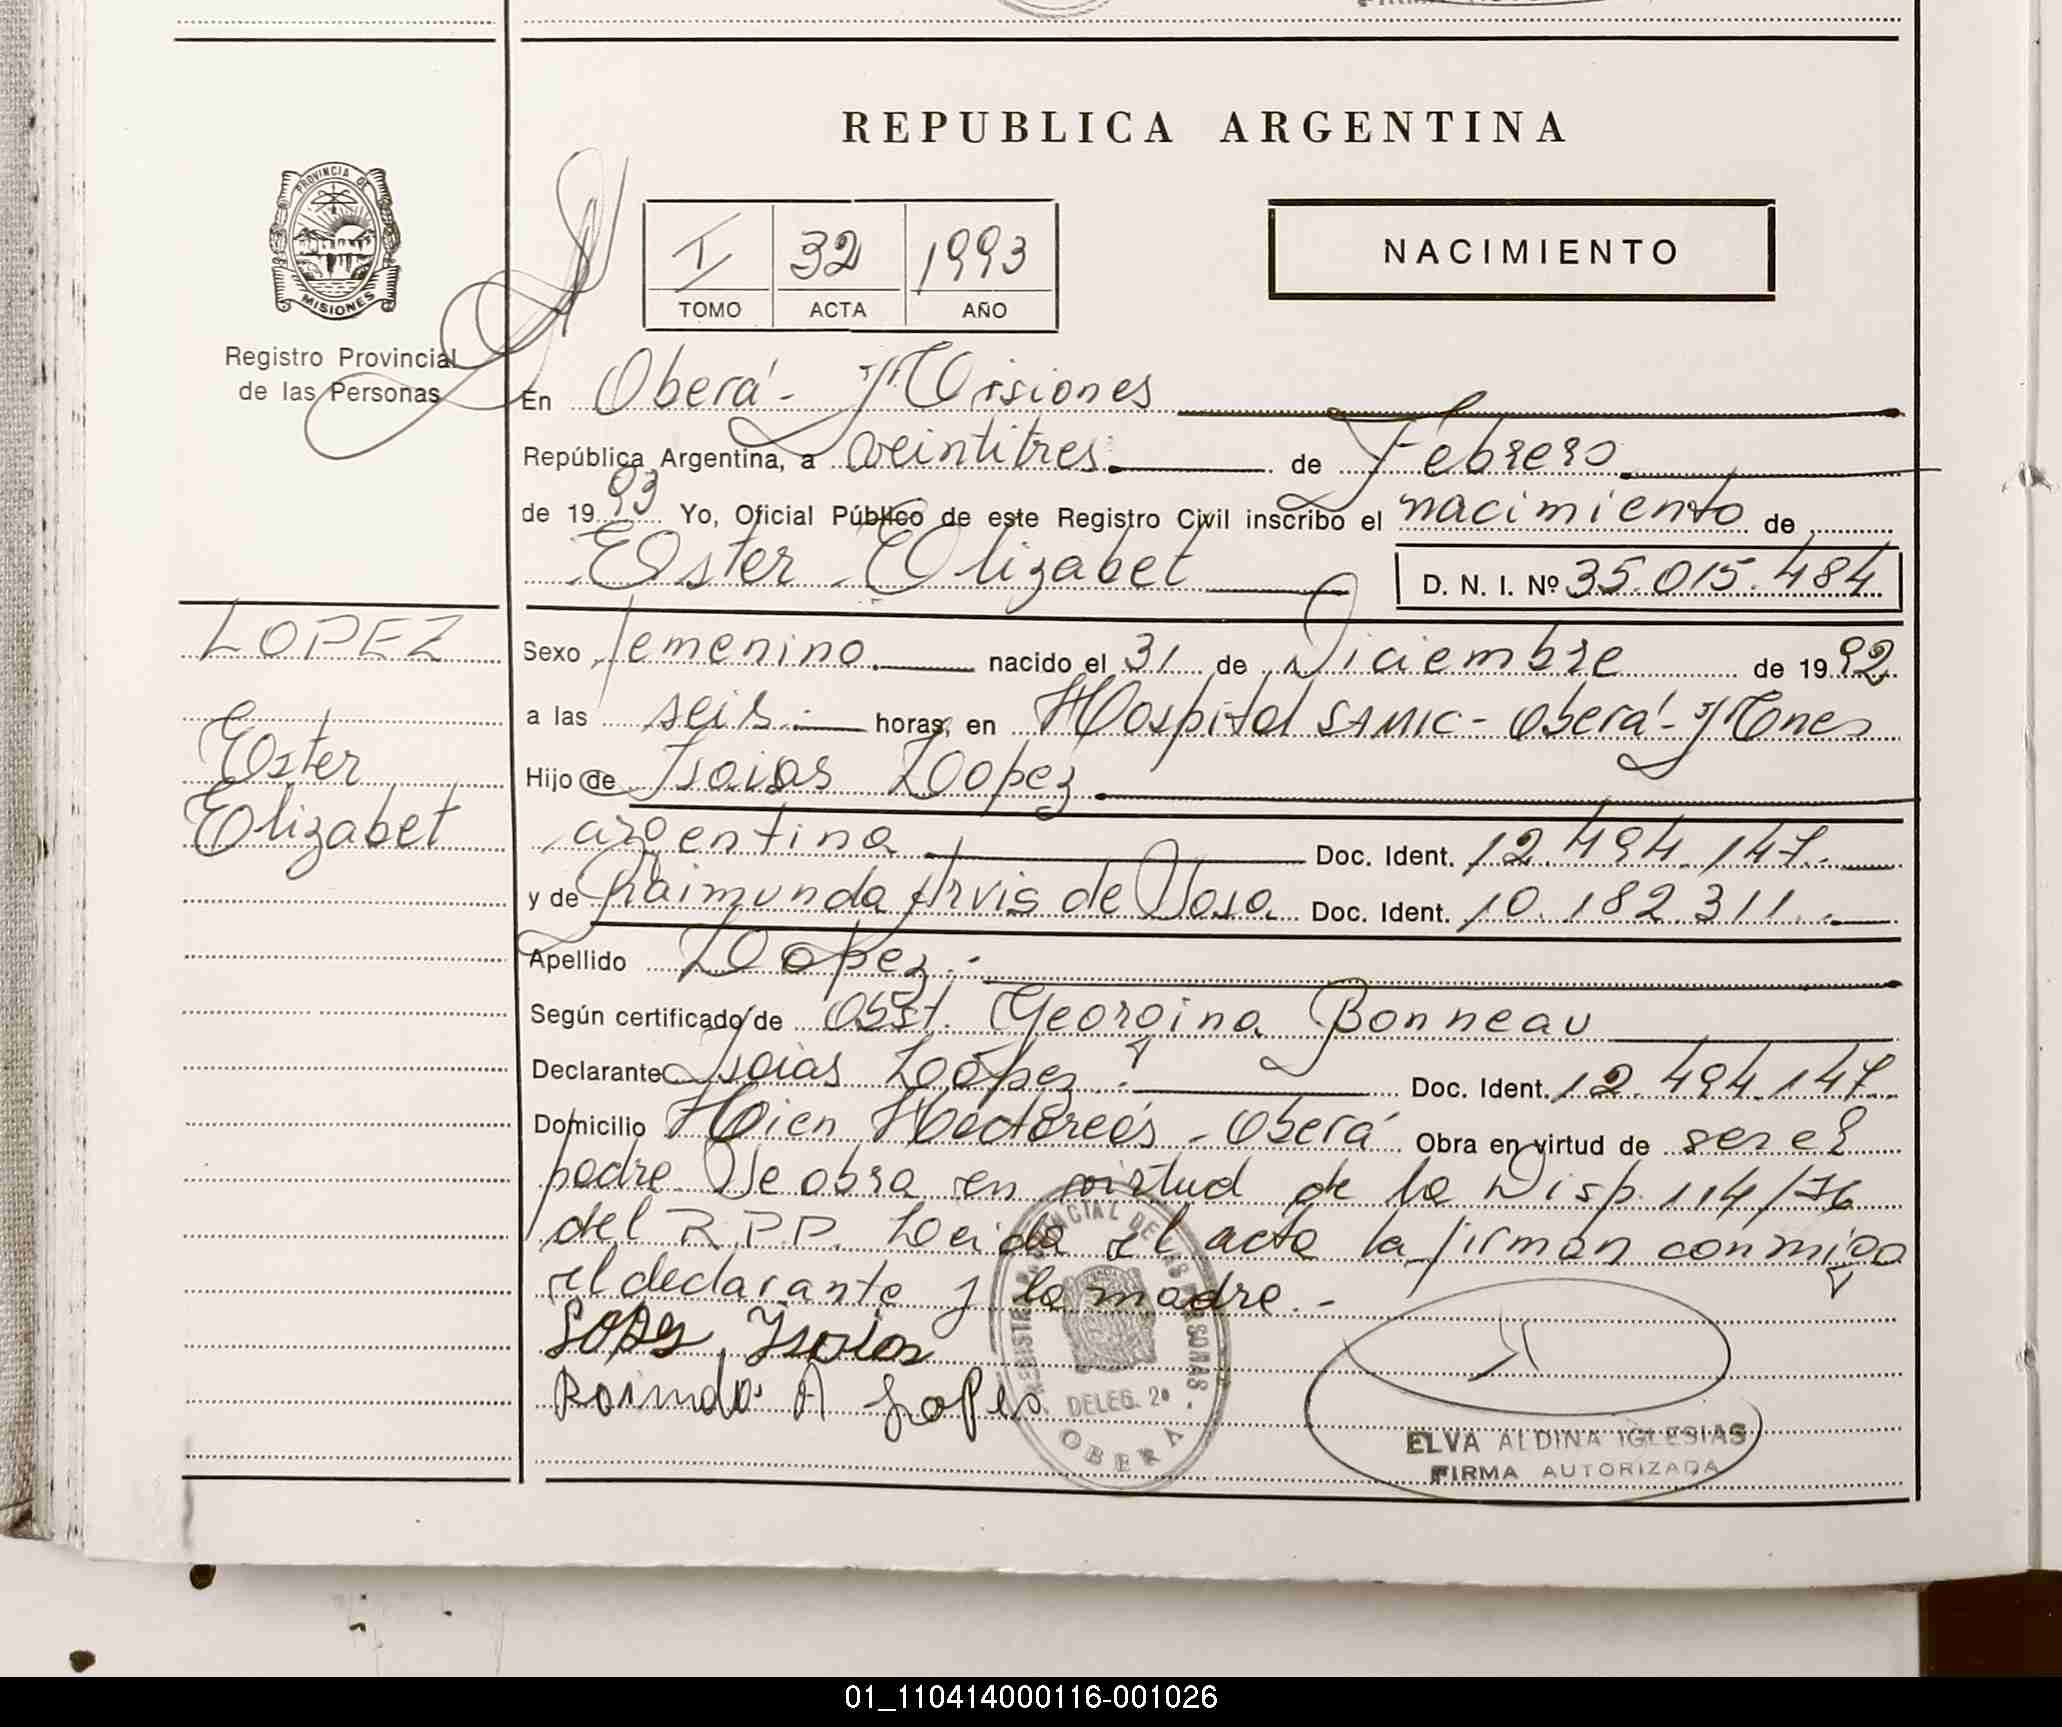 REPUBLICA ARGENTINA
PROVINCIA DE
MISIONES
Registro Provincial
de las Personas
I 32 1993
TOMO ACTA AÑO
NACIMIENTO
En Oberá - Misiones
República Argentina, a veintitres de Febrero
de 19 93 Yo, Oficial Público de este Registro Civil inscribo el nacimiento de
Ester Elizabet D. N. I. Nº 35.015.484
LOPEZ
Ester
Elizabet
Sexo femenino. nacido el 31 de Diciembre de 19 92
a las seis horas, en Hospital SAMIC - Oberá - Mnes
Hijo de Isaias Lopez
argentina Doc. Ident. 12.494.147.
y de Raimunda Arvis de Sosa Doc. Ident. 10.182.311.
Apellido Lopez.-
Según certificado de Obst. Georgina Bonneau
Declarante Isaias Lopez Doc. Ident. 12.494.147
Domicilio Cien Hectáreas - Oberá Obra en virtud de ser el
padre. Se obra en virtud de la Disp. 114/76
del R.P.P. Leida el acta la firman conmigo
el declarante y la madre.-
Lopez Isaias
A Lopes
REGISTRO PROVINCIAL DE LAS PERSONAS
DELEG. 2º
OBERA
ELVA ALDINA IGLESIAS
FIRMA AUTORIZADA
01_110414000116-001026